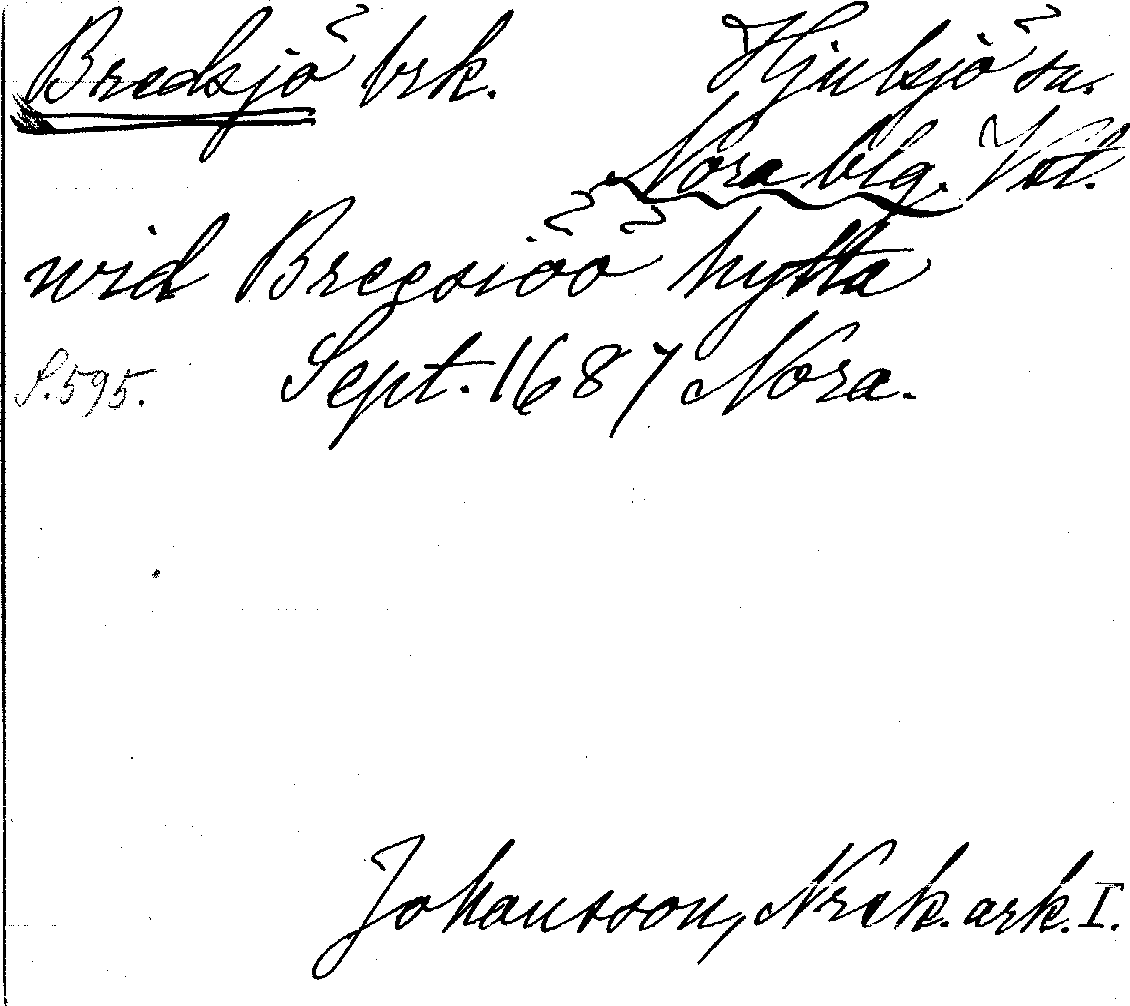 Bredsjö brk. Hjulsjö sn.
Nora blg. Vstl.
wid Bregsiöö hytta
S. 595. Sept. 1687 Nora.
Johansson, Nrck. ark. I.